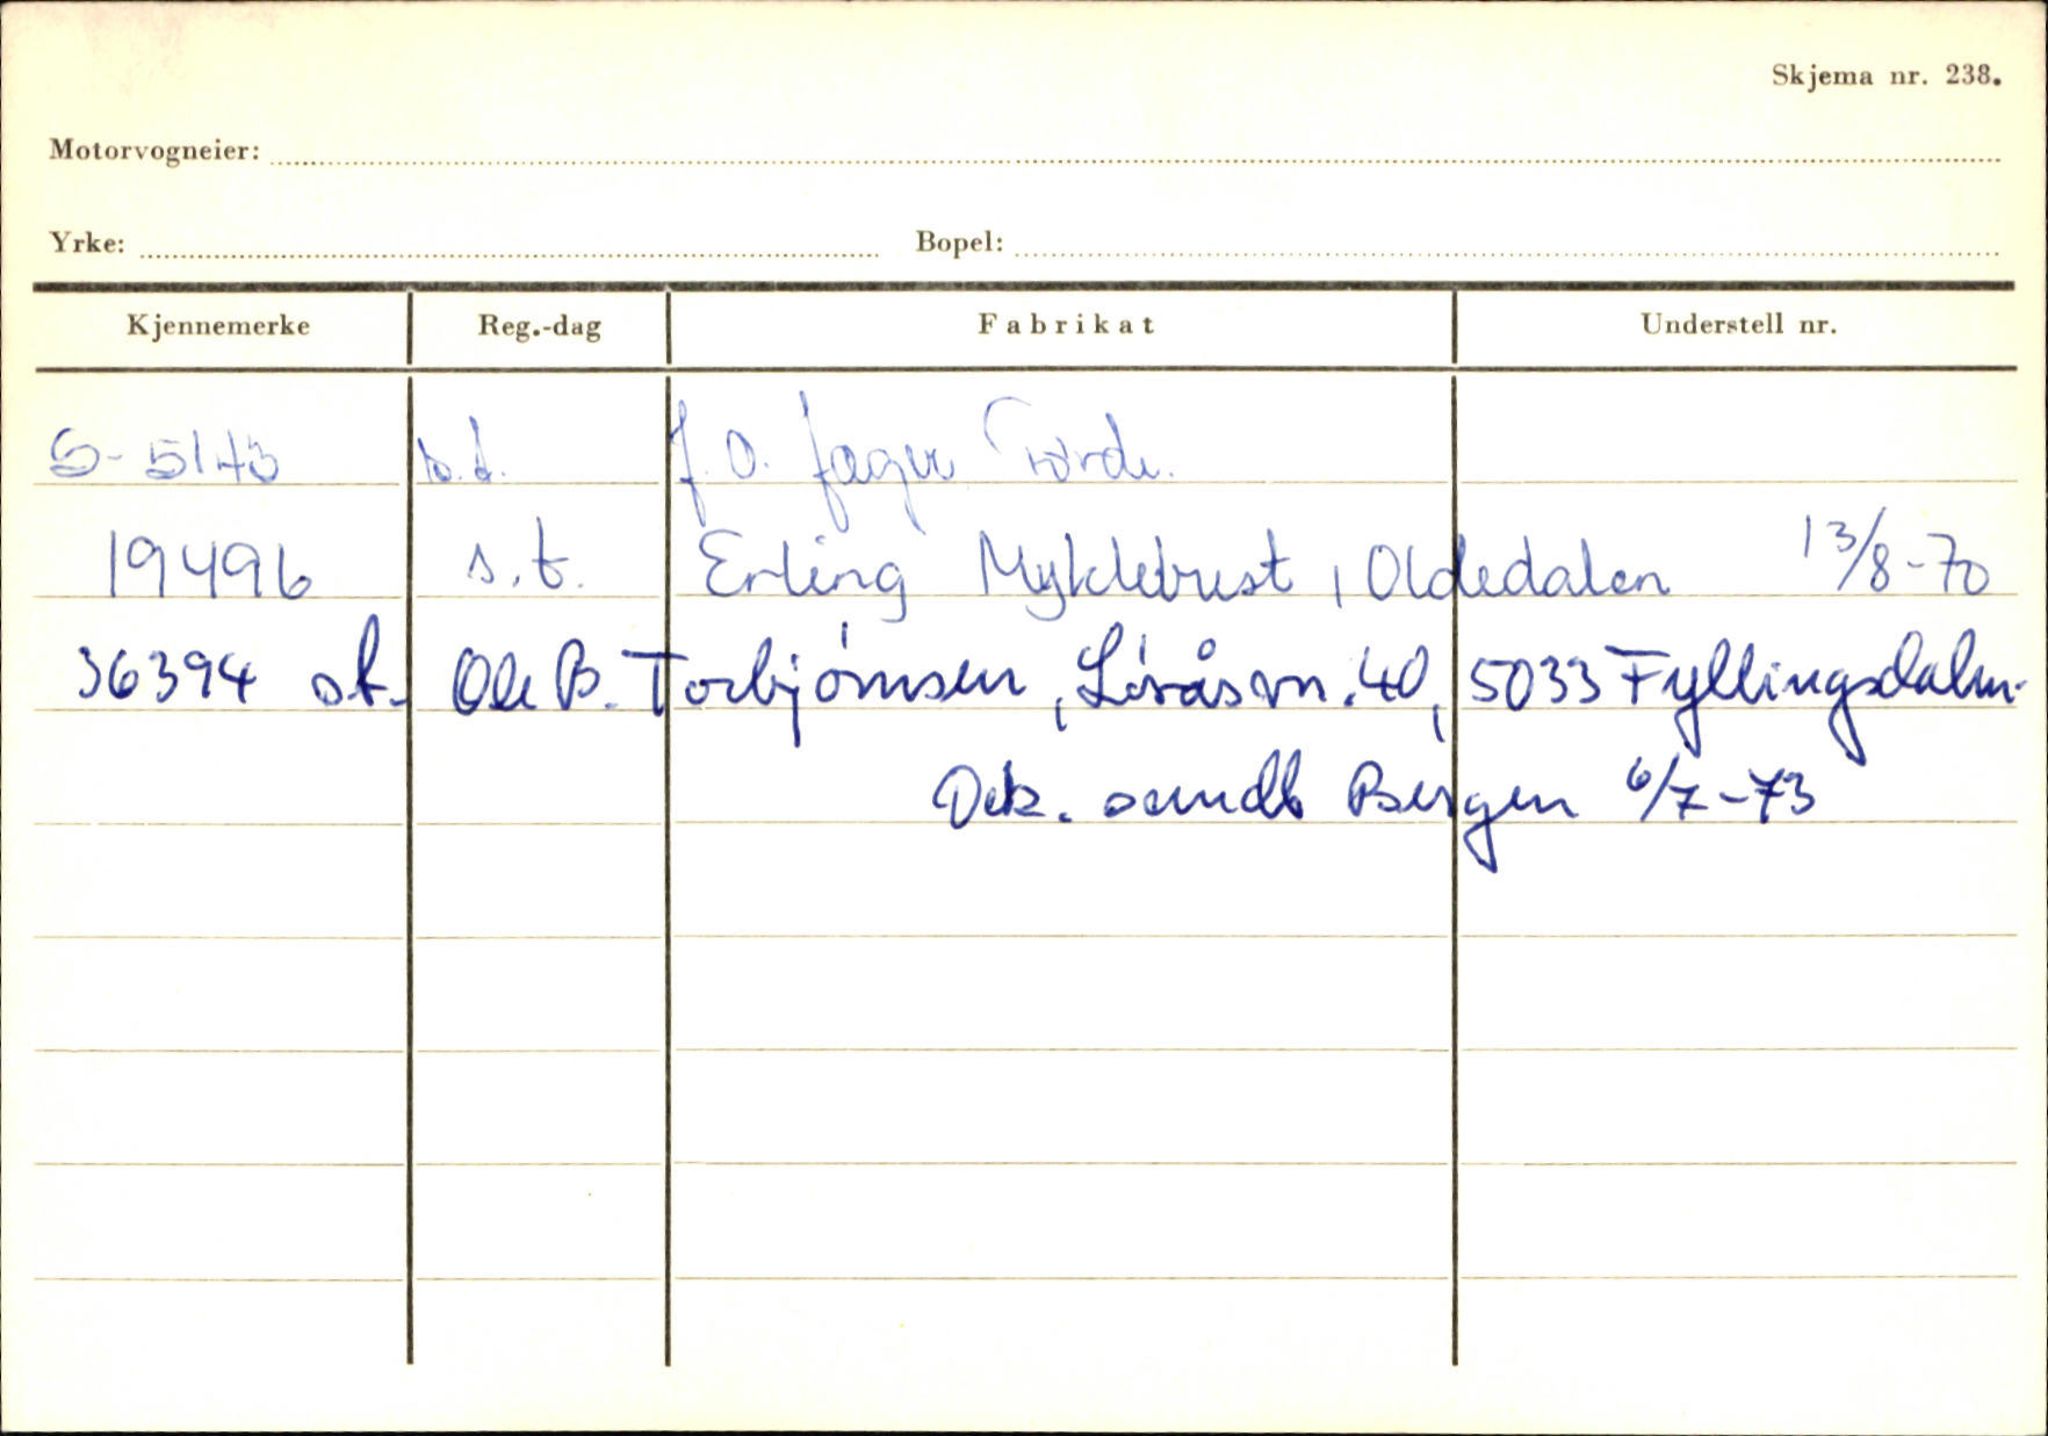 Skjema nr. 238.
Motorvogneier:
Yrke: Bopel:
Kjennemerke Reg.-dag Fabrikat Understell nr.
S-5173 s.t. J. O. Førde.
19496 s.t. Erling Myklebust, Oldedalen 13/8-70
36394 st. Ole B. Torbjørnsen, Løvåsvn. 40, 5033 Fyllingsdalen.
Dek. sendt Bergen 6/7-73